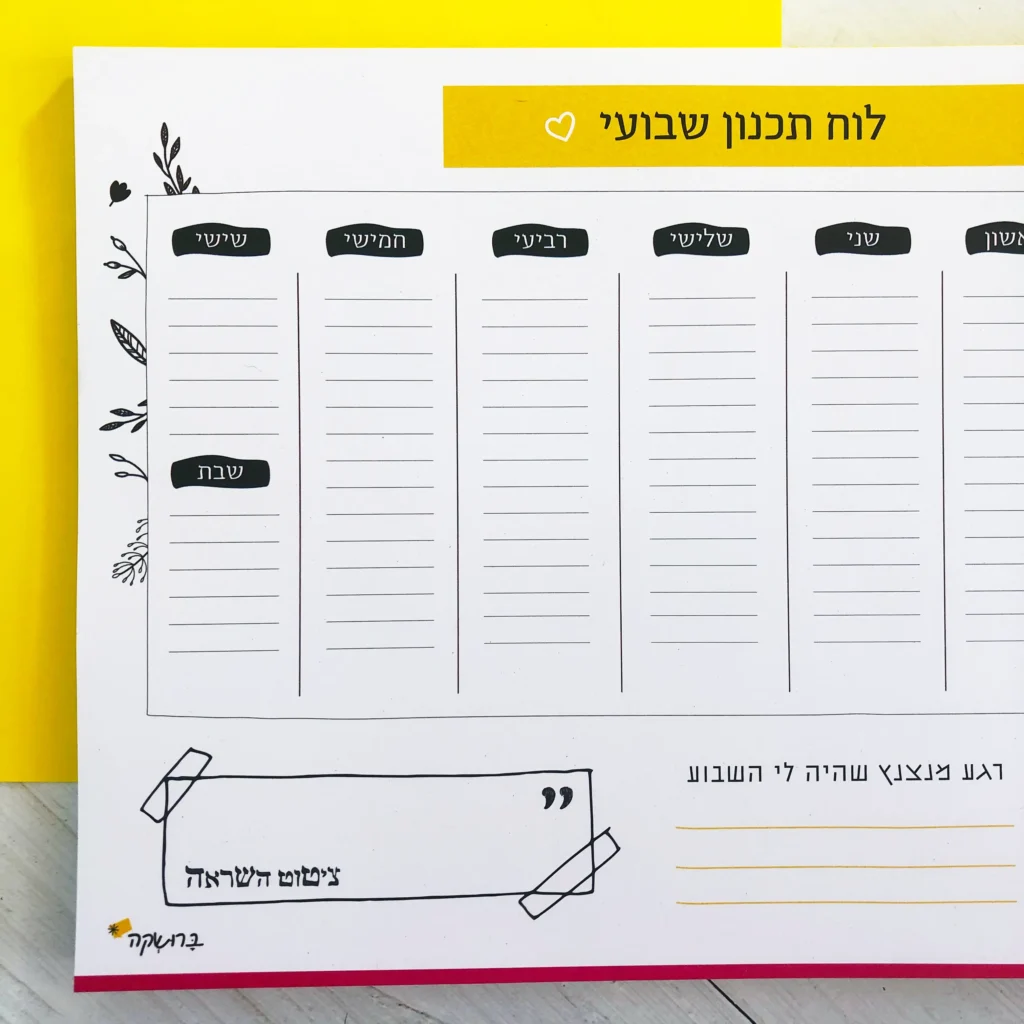 לוח תכנון שבועי
שני
שלישי
רביעי
חמישי
שישי
שבת
רגע מנצנץ שהיה לי השבוע
”
ציטוט השראה
בָּרוּשְׁקה